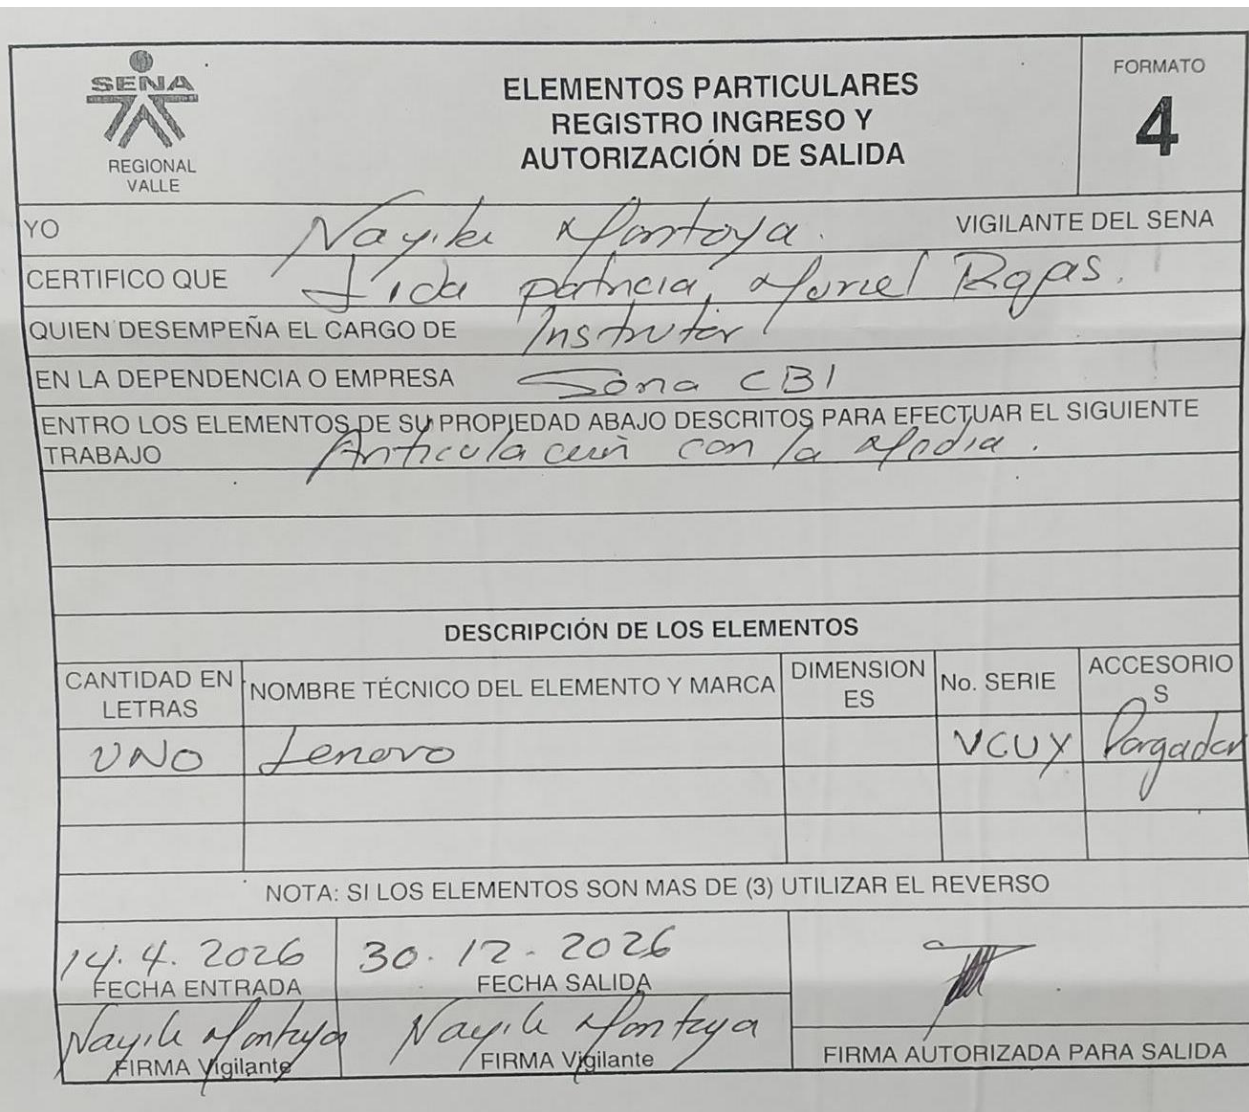 SENA
REGIONAL
VALLE
ELEMENTOS PARTICULARES
REGISTRO INGRESO Y
AUTORIZACIÓN DE SALIDA
FORMATO
4
YO Nayile Montoya. VIGILANTE DEL SENA
CERTIFICO QUE Lida patricia, Muriel Rojas.
QUIEN DESEMPEÑA EL CARGO DE Instrutor
EN LA DEPENDENCIA O EMPRESA Sena CBI
ENTRO LOS ELEMENTOS DE SU PROPIEDAD ABAJO DESCRITOS PARA EFECTUAR EL SIGUIENTE
TRABAJO Articulación con la Media.
DESCRIPCIÓN DE LOS ELEMENTOS
CANTIDAD EN LETRAS NOMBRE TÉCNICO DEL ELEMENTO Y MARCA DIMENSIONES No. SERIE ACCESORIOS
UNO Lenovo VCUY Cargador
NOTA: SI LOS ELEMENTOS SON MAS DE (3) UTILIZAR EL REVERSO
14.4.2026 30.12-2026
FECHA ENTRADA FECHA SALIDA
Nayile Montoya Nayile Montoya
FIRMA Vigilante FIRMA Vigilante FIRMA AUTORIZADA PARA SALIDA